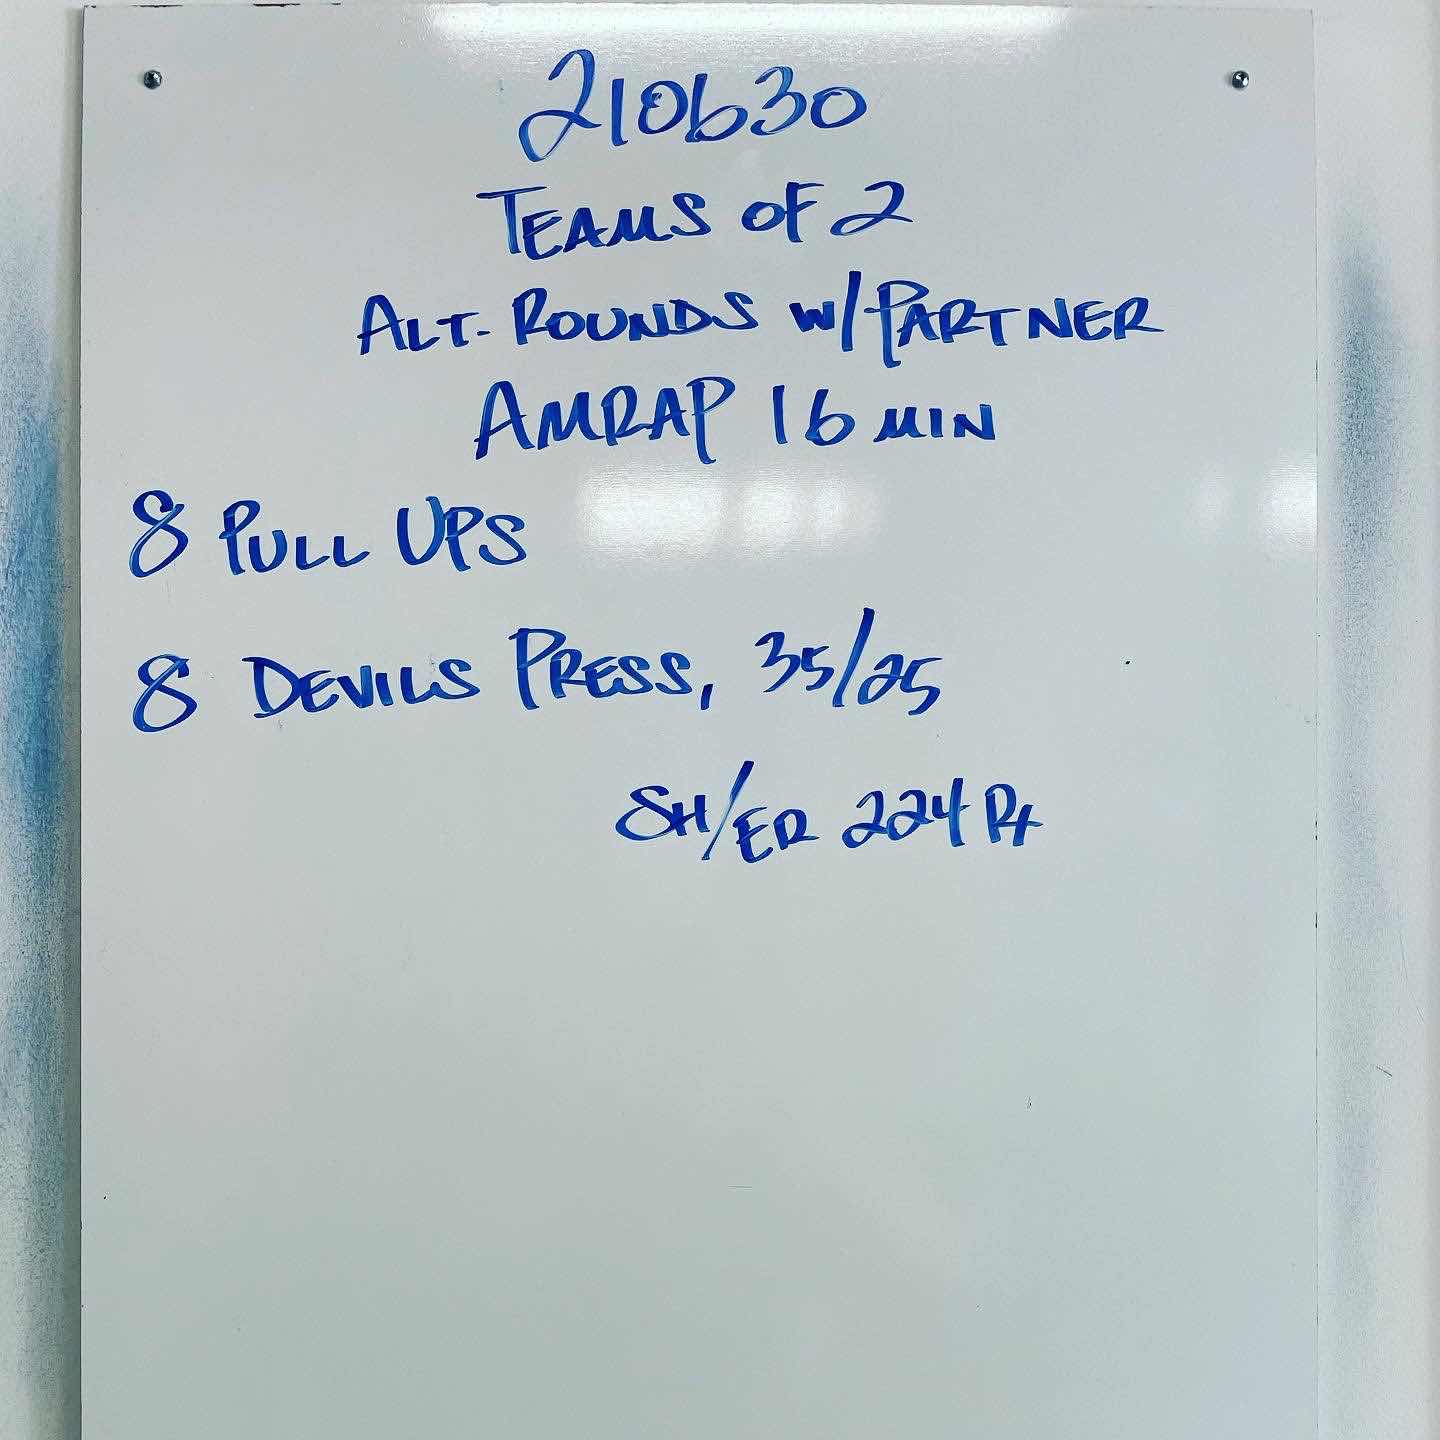 210630
TEAMS OF 2
ALT. ROUNDS W/PARTNER
AMRAP 16 MIN
8 PULL UPS
8 DEVILS PRESS, 35/25
SH/ER 224 Rx